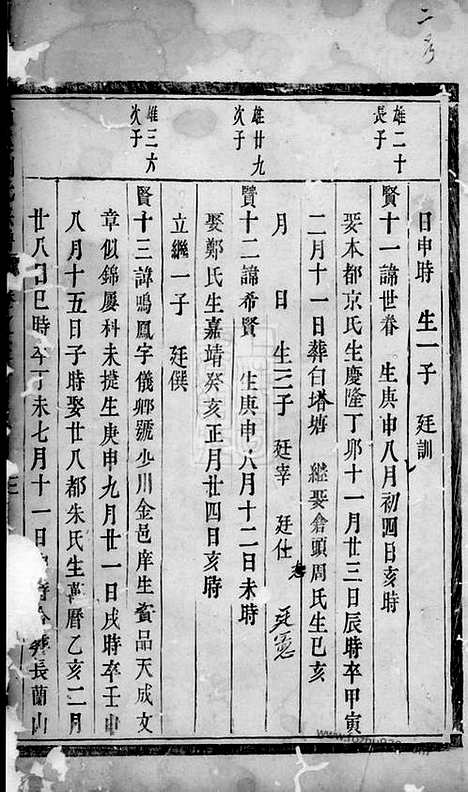 二考
日申時 生一子 廷訓
雄二十長子
賢十一諱世春 生庚申八月初四日亥時
娶本都京氏生慶隆丁卯十一月廿三日辰時卒甲寅
二月十一日葬白塔塘 繼娶倉頭周氏生己亥
月 日 生三子 廷宰 廷仕 廷憲
雄廿九次子
賢十二諱希賢 生庚申六月十二日未時
娶鄭氏生嘉靖癸亥正月廿四日亥時
立繼一子 廷僎
雄三六次子
賢十三諱鳴鳳字儀卿號少川金邑庠生賓品天成文
章似錦屡科未捷生庚申九月廿一日戌時卒壬申
八月十五日子時娶廿八都朱氏生萬曆乙亥二月
廿八日巳時卒丁未七月十一日 時 長蘭山